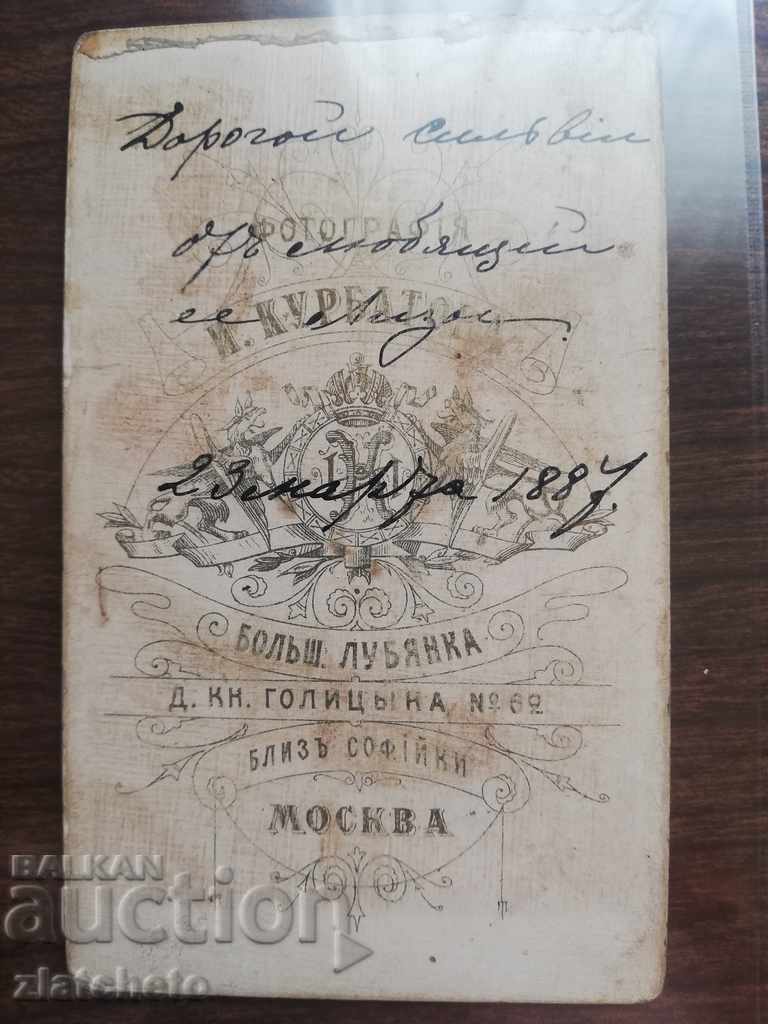 Дорогой Сильвіи
ФОТОГРАФІЯ
отъ любящий
И. КУРБАТОВ
ее Лизы.
23 марта 1887.
БОЛЬШ. ЛУБЯНКА
Д. КН. ГОЛИЦЫНА № 62
БЛИЗЪ СОФІЙКИ
МОСКВА
BALKAN
auction
zlatcheto